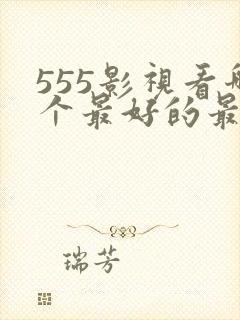 555影視看
个最好的最
瑞芳